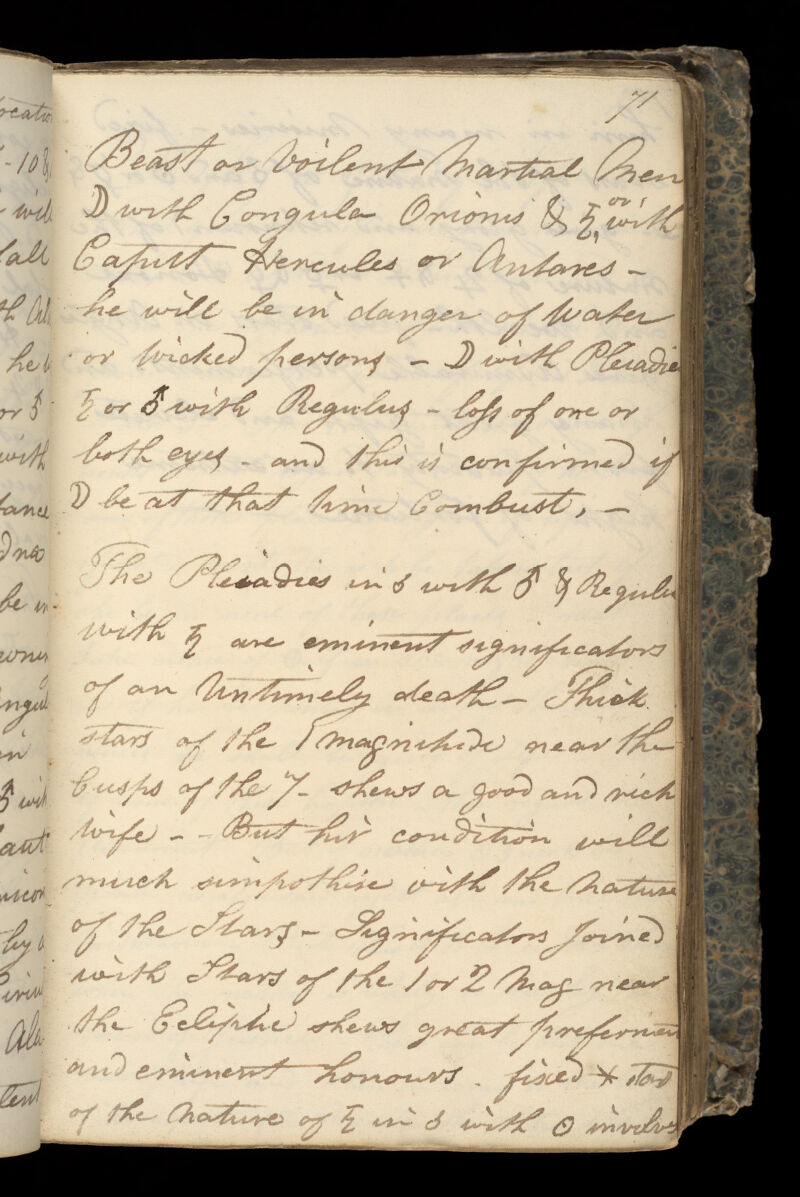 ocatio
71
- 10 &
Beast or Voilent Martial Men
will
☽ with Congula Orionis & ♄ or with
Caputt Hercules or Antares -
he will be in danger of Water
or Wicked persons - ☽ with Pleiadie
♄ or ♂ with Regulus - loss of one or
both eyes - and this is confirmed if
☽ be at that time Combust, -
The Pleiadies in ☌ with ♂ & Regulu
with ♄ are eminent significators
of an Untimely death - Thick
stars of the 1 magnitude near the
Cusps of the 7 - shews a good and rich
wife - - But hir condition will
much simpothise with the Nature
of the Stars - Significators Joined
with Stars of the 1 or 2 Mag near
the Ecliptic shews great prefermen
and eminent honours . fixed * star
of the Nature of ♄ in ☌ with ☉ involvs